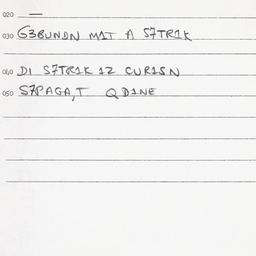 020 —
030 G3BUNDN M1T A S7TR1K
040 D1 S7TR1K 1Z CUR1SN
050 S7PAGA,T Q D1NE